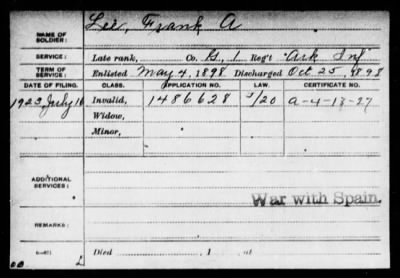 NAME OF SOLDIER: Lee, Frank A
SERVICE: Late rank, Co. G, 1 Reg't Ark Inf
TERM OF SERVICE: Enlisted May 4, 1898 Discharged Oct 25, 1898
DATE OF FILING. CLASS. APPLICATION NO. LAW. CERTIFICATE NO.
1923 July 16 Invalid, 1486628 5/20 A-4-18-27
Widow,
Minor,
ADDITIONAL SERVICES:
War with Spain.
REMARKS:
Died , 1 , at